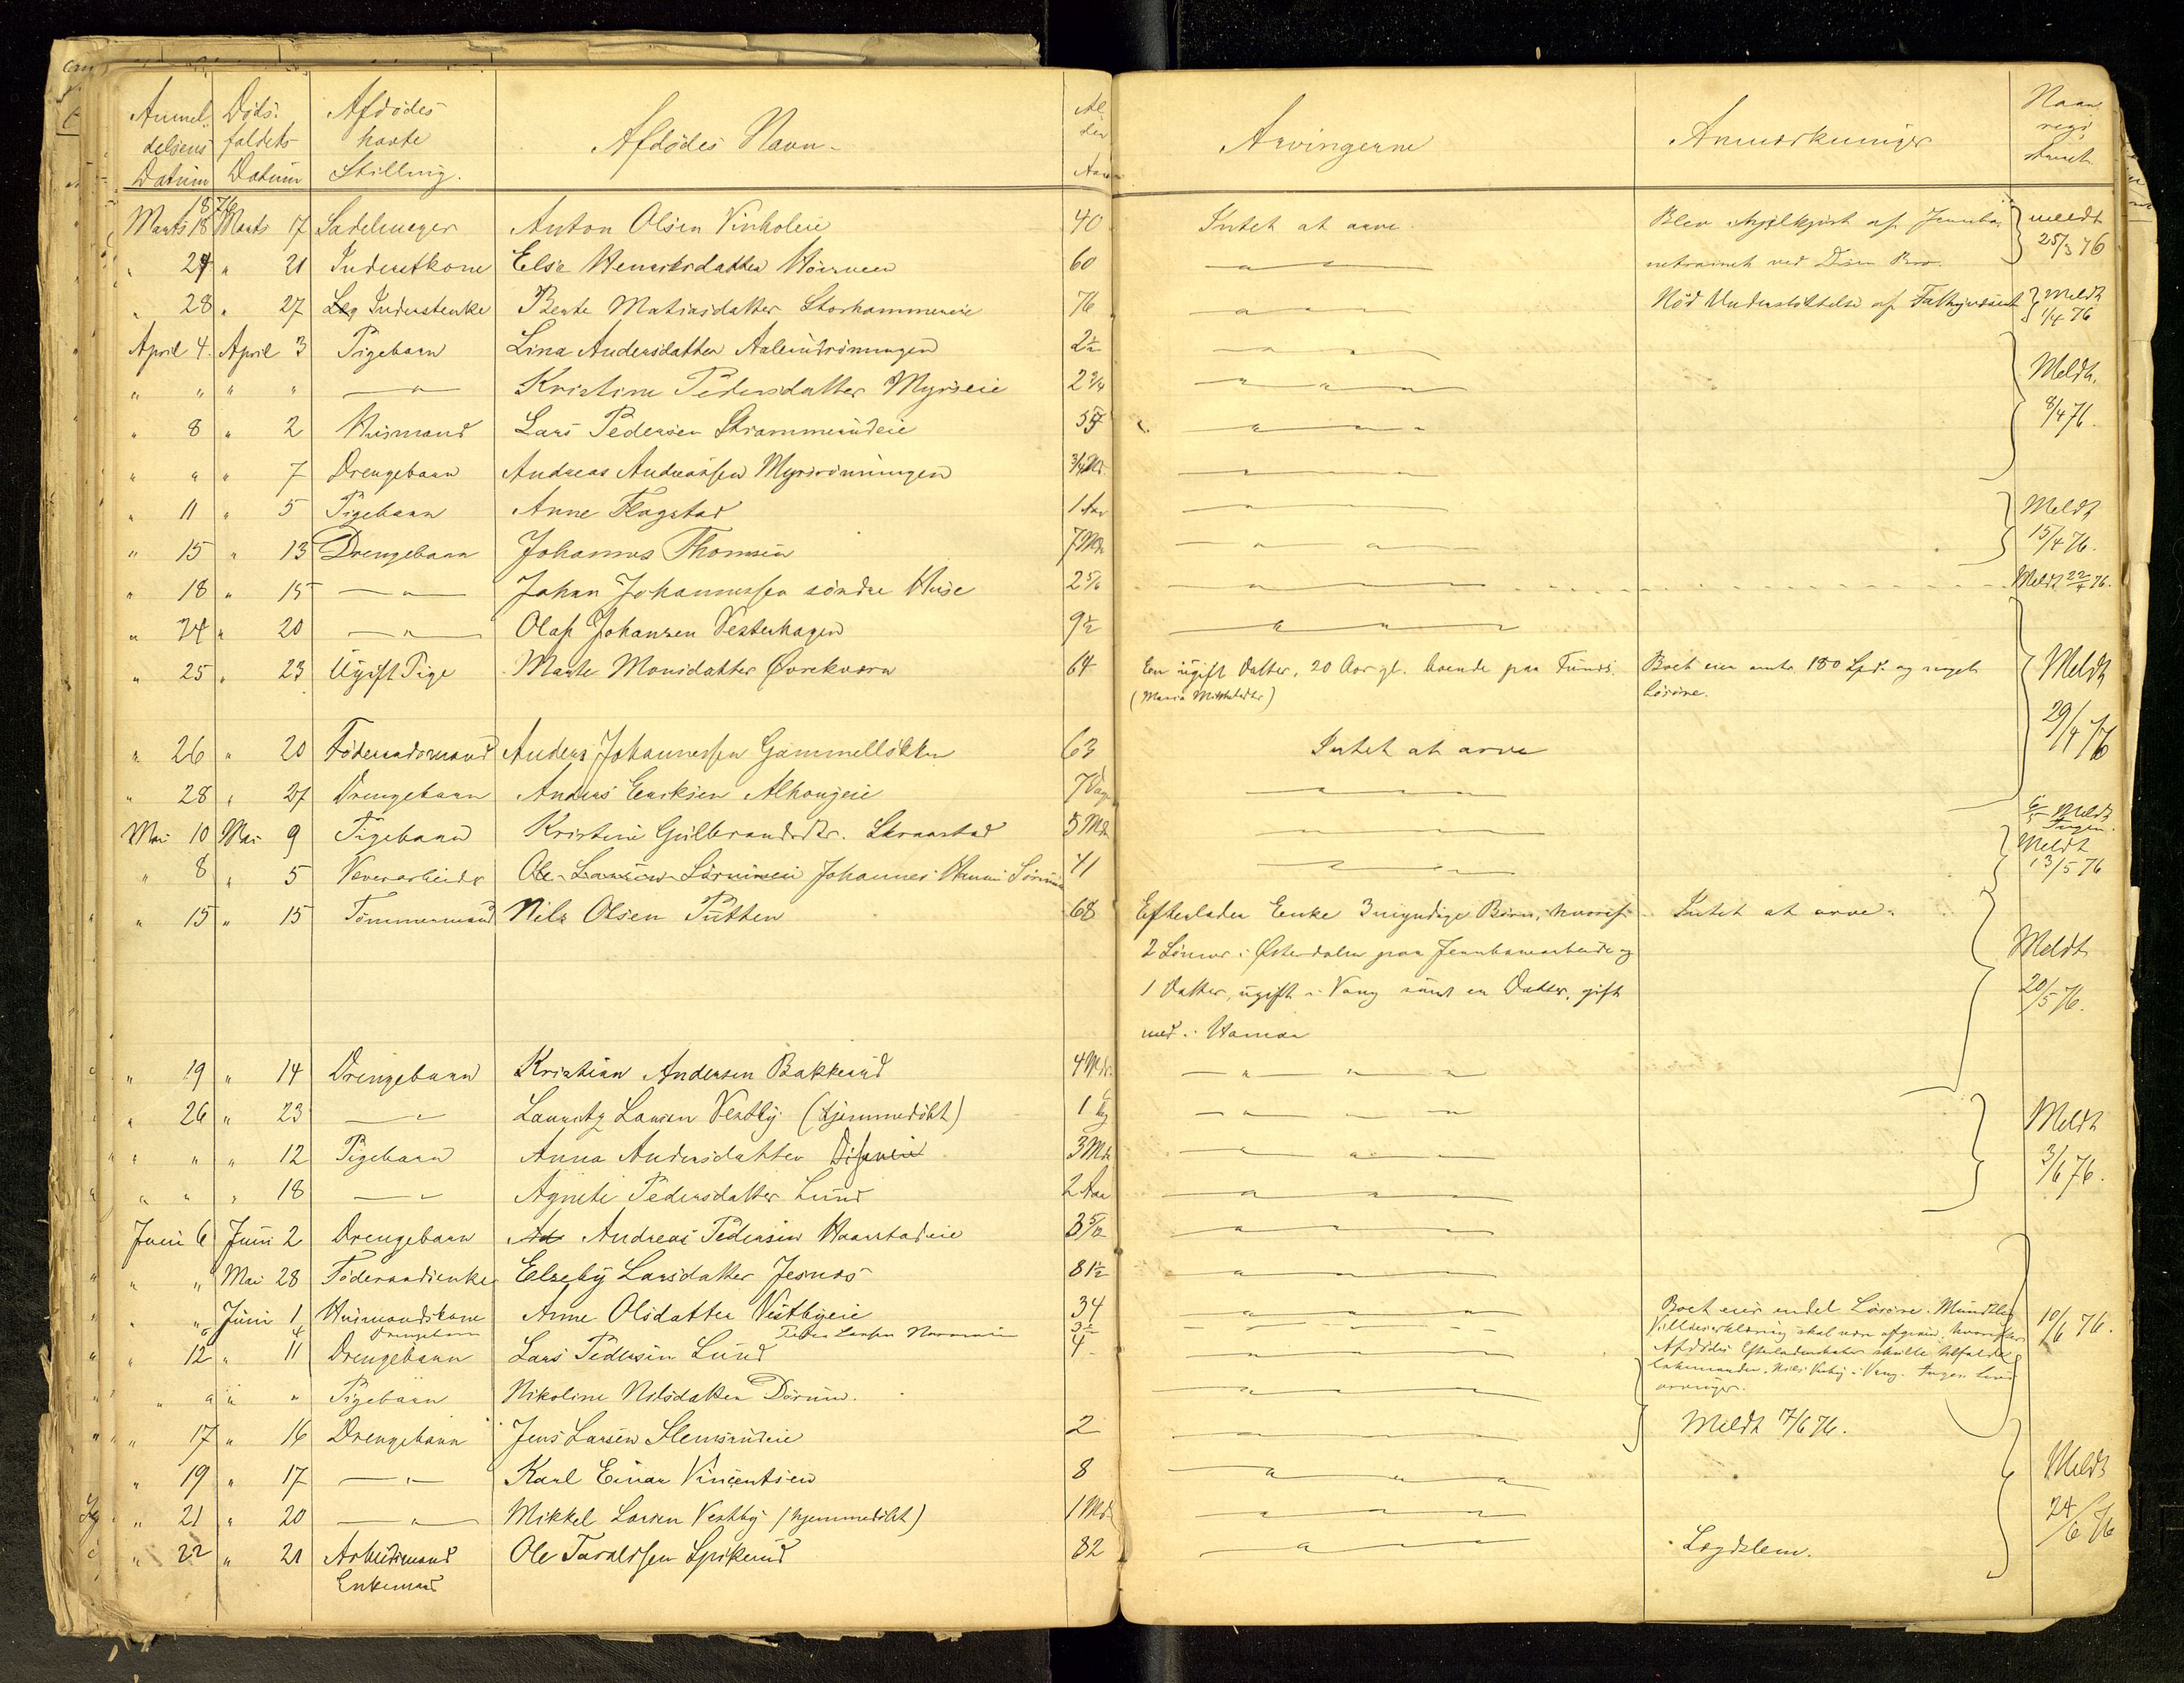 Anmel- Døds- Afdødes Al- Naar
delsens faldets havte Afdødes Navn. der Arvingerne Anmærkninger regi-
Datum Datum Stilling. Aar
1876
Marts 18 Marts 17 Sadelmager Anton Olsen Vinholeie 40 Intet at arve. Blev ihjelkjørt af Jernba- meldt
" 24 " 21 Inderstkone Else Henriksdatter 60 — " — " — ved Disen Bro. 25/3 76
" 28 " 27 Inderstenke Berte Matiasdatter Storhammereie 76 — " — " — Nød Understøttelse af Fattigvæsenet Meldt 1/4 76
April 4. April 3 Pigebarn Lina Andersdatter 2½ — " — " —
" " " " — " — Kristine Pedersdatter Myrseie 2¾ — " — " — Meldt.
" 8 " 2 Husmand Lars Pedersen Skrammerudeie 54 — " — " — 8/4 76.
" " " 7 Drengebarn Andreas Andreassen Myrsrønningen ¾ — " — " —
" 11 " 5 Pigebarn Anne Flagstad 1 Aar — " — " — Meldt
" 15 " 13 Drengebarn Johannes Thomsen 7 Mdr — " — " — 15/4 76.
" 18 " 15 — " — Johan Johannessen søndre Huse 2 5/6 — " — " — Meldt 22/4 76.
" 24 " 20 — " — Olaf Johansen Vesterhagen 9½ — " — " —
" 25 " 23 Ugift Pige Marte Monsdatter Øvrekvern 64 En ugift Datter, 20 Aar gl. boende paa Boet eier omtr. 180 Spd. og noget Meldt
(Maria ) Løsøre. 29/4 76
" 26 " 20 Føderaadsmand Anders Johannessen Gammelløkken 63 Intet at arve
" 28 " 27 Drengebarn Anders Eriksen 7 Dage — " — " —
Mai 10 Mai 9 Pigebarn Kristine Gulbrandsdtr. Skraastad 5 Mdr — " — " — Meldt Ingen.
" 8 " 5 Ole Larsen Johannes 41 — " — " — Meldt 13/5 76
" 15 " 15 Tømmermand Nils Olsen Putten 68 Efterlader Enke 3 myndige Børn, hvoraf Intet at arve.
2 Sønner i Østerdalen paa Jernbanearbeide og Meldt
1 Datter, ugift i Vang samt en Datter, gift 20/5 76.
med i Hamar
" 19 " 14 Drengebarn Kristian Andersen Bakkerud 4 Mdr. — " — " —
" 26 " 23 — " — Lauritz Larsen Vestby (hjemmedøbt) 1 — " — " — Meldt
" " " 12 Pigebarn Anna Andersdatter Diseneie 3 Mdr — " — " — 3/6 76.
" " " 18 — " — Agnete Pedersdatter Lund 2 Aar — " — " —
Juni 6 Juni 2 Drengebarn Andreas Pedersen Haarstadeie 3 5/12 — " — " —
" " Mai 28 Føderaadsenke Elseby Larsdatter Jesnes 81½ — " — " —
" " Juni 1 Husmandskone Anne Olsdatter Vestbyeie 34 — " — " — Boet eier endel Løsøre. Mundtlig 10/6 76.
6 4 Drengebarn Peder Larsen 3½ — " — " — skal være afgiven, hvorefter
" 12 " 11 Drengebarn Lars Pedersen Lund 4 — " — " — Afdødes Efterladenskaber skulle tilfalde
" " " " Pigebarn Nikoline Nilsdatter Dørum. — " — " — Nils Vestby i Vang. Ingen Livs-
arvinger.
" 17 " 16 Drengebarn Jens Larsen Slemsrudeie 2 — " — " — Meldt 17/6 76.
" 19 " 17 — " — Karl Einar Vincentsen 8 — " — " — Meldt
" 21 " 20 — " — Mikkel Larsen Vestby (hjemmedøbt) 1 Md. — " — " — 24/6 76
" 22 " 21 Arbeidsmand Ole Taraldsen Spikerud 82 — " — " — Lægdslem.
Enkemand